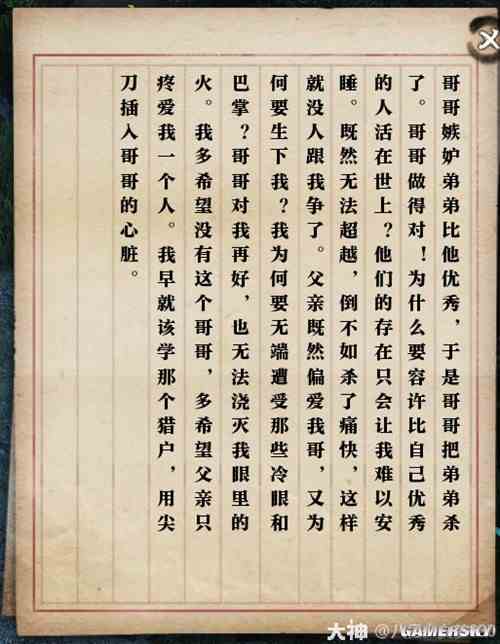 哥哥嫉妒弟弟比他优秀，于是哥哥把弟弟杀
了。哥哥做得对！为什么要容许比自己优秀
的人活在世上？他们的存在只会让我难以安
睡。既然无法超越，倒不如杀了痛快，这样
就没人跟我争了。父亲既然偏爱我哥，又为
何要生下我？我为何要无端遭受那些冷眼和
巴掌？哥哥对我再好，也无法浇灭我眼里的
火。我多希望没有这个哥哥，多希望父亲只
疼爱我一个人。我早就该学那个猎户，用尖
刀插入哥哥的心脏。
大神
GAMERSKY